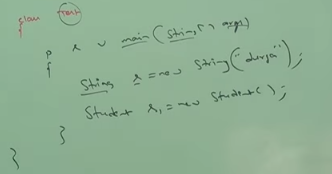 class Test
{
p s v main(String[] args)
{
String s = new String("durga");
Student s1 = new Student();
}
}